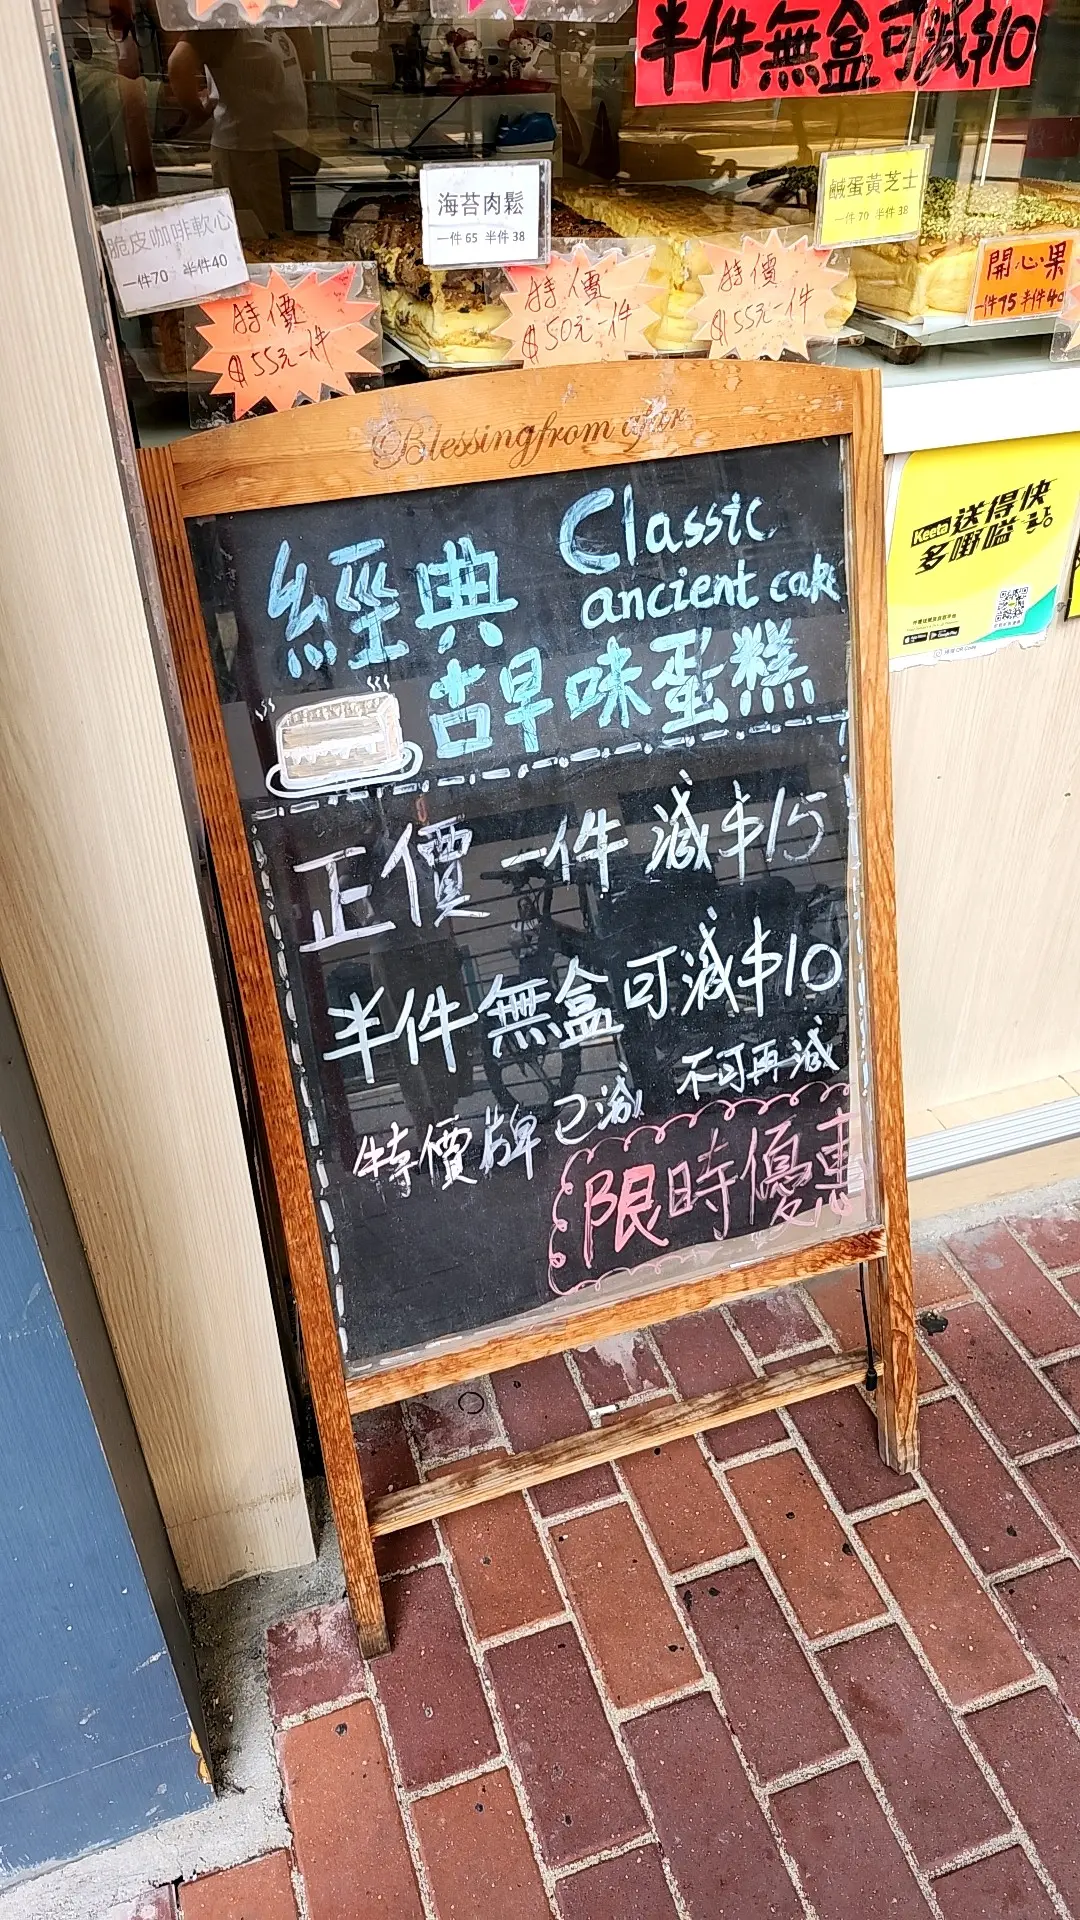 半件無盒可減$10
脆皮咖啡軟心
一件70 半件40
海苔肉鬆
一件 65 半件 38
鹹蛋黃芝士
一件 70 半件 38
開心果
一件75 半件40
特價
$55元一件
特價
$50元一件
特價
$55元一件
Blessing from afar
Classic
ancient cake
經典
古早味蛋糕
正價一件減$15
半件無盒可減$10
特價牌已減 不可再減
限時優惠
Keeta 送得快
多嘢嗌